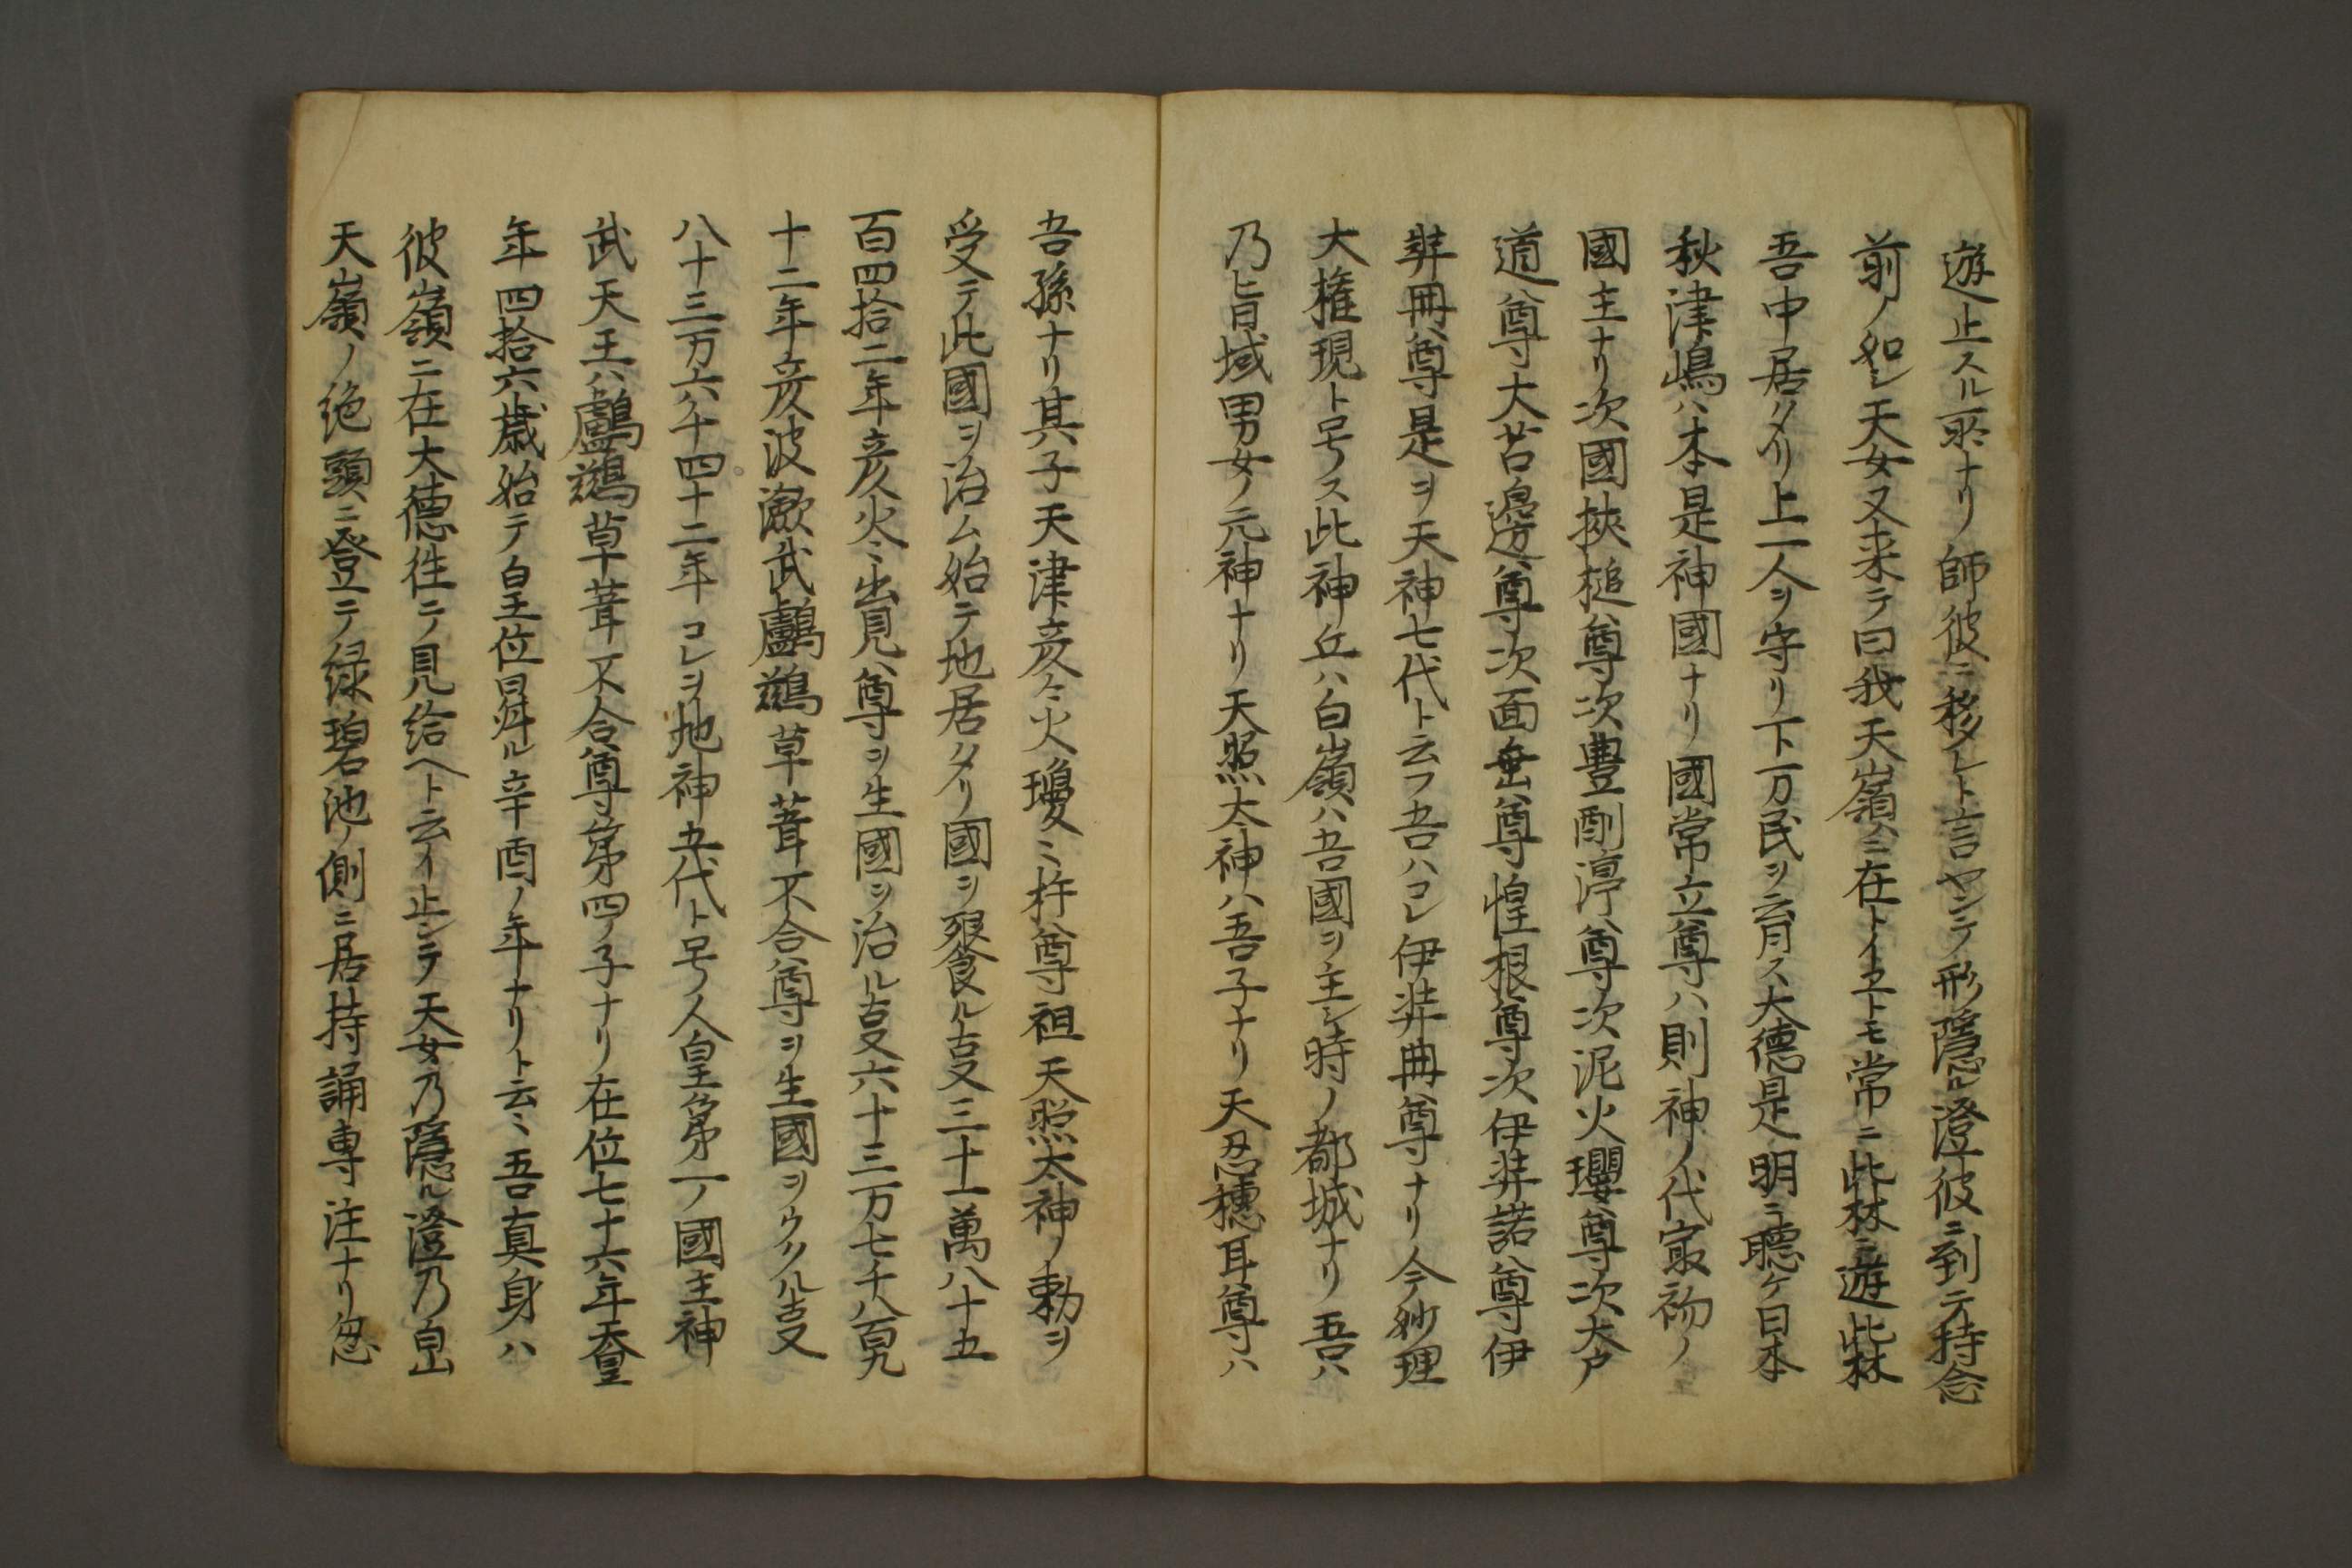 遊止スル所ナリノ師彼ニ移レト言ヤンテ形隠ル澄彼ニ到テ持念
前ノ如シ天女又来テ曰我天嶺ニ在トイヱトモ常ニ此林ニ遊此林
吾中居タリ上一人ヲ守リ下万民ヲ育ス大徳是明ニ聴ケ日本
秋津嶋ハ本是神國ナリ國常立尊ハ則神ノ代㝡初ノ
國主ナリ次國挾槌尊次豊斟渟尊次泥火瓔尊次大戸
道尊大苫邊尊次面垂尊惶根尊次伊弉諾尊伊
弉冊尊是ヲ天神七代ト云フ吾ハコレ伊弉冊尊ナリ今妙理
大権現ト号ス此神丘ハ白嶺ハ吾國ヲ主シ時ノ都城ナリ吾ハ
乃日域男女ノ元神ナリ天照太神ハ吾子ナリ天忍穂耳尊ハ
吾孫ナリ其子天津彦々火瓊ミ杵尊祖天照太神ノ勅ヲ
受テ此國ヲ治ム始テ地居タリ國ヲ飡ル㕝三十一萬八十五
百四拾二年彦火ミ出見尊ヲ生國ヲ治ル㕝六十三万七千八百九
十二年彦波瀲武鸕鷀草葺不合尊ヲ生國ヲウクル㕝
八十三万六千四十二年コレヲ地神五代ト号ノ人皇第一ノ國主神
武天王ハ鸕鷀草葺不合尊第四ノ子ナリ在位七十六年
年四拾六歳始テ白王位昇ル辛酉ノ年ナリト云ミ吾真身ハ
彼嶺ニ在大徳往テ見給ヘト云イ止シテ天女乃隠ル澄乃白山
天嶺ノ絶頭ニ登テ緑碧池ノ側ニ居持誦専注ナリ忽